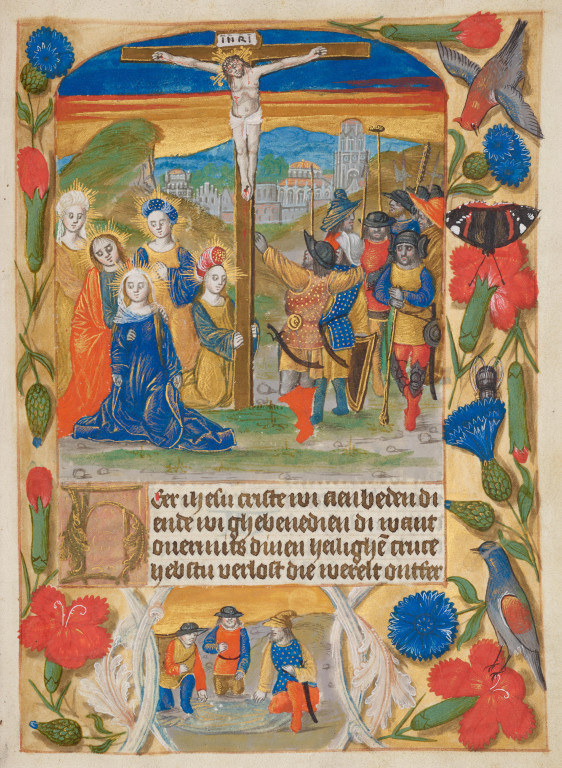 INRI
Heer ihesu criste wi aenbeden di
ende wi ghebenedien di want
ouermits dinen heilighē cruce
hebstu verlost die werelt ontfer